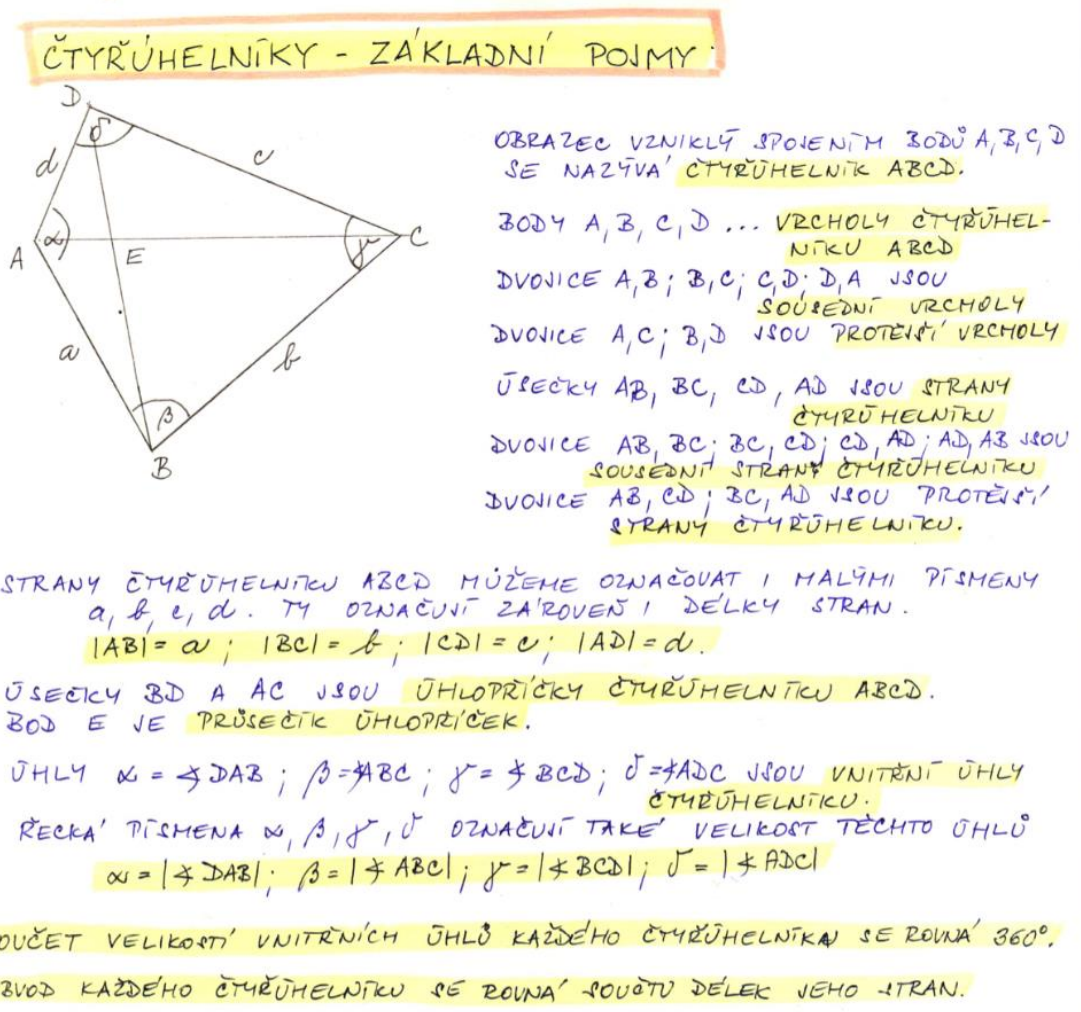 ČTYŘÚHELNÍKY - ZÁKLADNÍ POJMY
D
δ
d
c
A
α
E
γ
C
a
b
β
B
OBRAZEC VZNIKLÝ SPOJENÍM BODŮ A, B, C, D
SE NAZÝVÁ ČTYŘÚHELNÍK ABCD.
BODY A, B, C, D ... VRCHOLY ČTYŘÚHEL-
NÍKU ABCD
DVOJICE A,B; B,C; C,D; D,A JSOU
SOUSEDNÍ VRCHOLY
DVOJICE A,C; B,D JSOU PROTĚJŠÍ VRCHOLY
ÚSEČKY AB, BC, CD, AD JSOU STRANY
ČTYŘÚHELNÍKU
DVOJICE AB, BC; BC, CD; CD, AD; AD, AB JSOU
SOUSEDNÍ STRANY ČTYŘÚHELNÍKU
DVOJICE AB, CD; BC, AD JSOU PROTĚJŠÍ
STRANY ČTYŘÚHELNÍKU.
STRANY ČTYŘÚHELNÍKU ABCD MŮŽEME OZNAČOVAT I MALÝMI PÍSMENY
a, b, c, d. TY OZNAČUJÍ ZÁROVEŇ I DÉLKY STRAN.
|AB| = a; |BC| = b; |CD| = c; |AD| = d.
ÚSEČKY BD A AC JSOU ÚHLOPŘÍČKY ČTYŘÚHELNÍKU ABCD.
BOD E JE PRŮSEČÍK ÚHLOPŘÍČEK.
ÚHLY α = ∢ DAB; β = ∢ABC; γ = ∢ BCD; δ = ∢ADC JSOU VNITŘNÍ ÚHLY
ČTYŘÚHELNÍKU.
ŘECKÁ PÍSMENA α, β, γ, δ OZNAČUJÍ TAKÉ VELIKOST TĚCHTO ÚHLŮ
α = |∢ DAB|; β = |∢ ABC|; γ = |∢ BCD|; δ = |∢ ADC|
OUČET VELIKOSTÍ VNITŘNÍCH ÚHLŮ KAŽDÉHO ČTYŘÚHELNÍKA SE ROVNÁ 360°.
BVOD KAŽDÉHO ČTYŘÚHELNÍKU SE ROVNÁ SOUČTU DÉLEK JEHO STRAN.